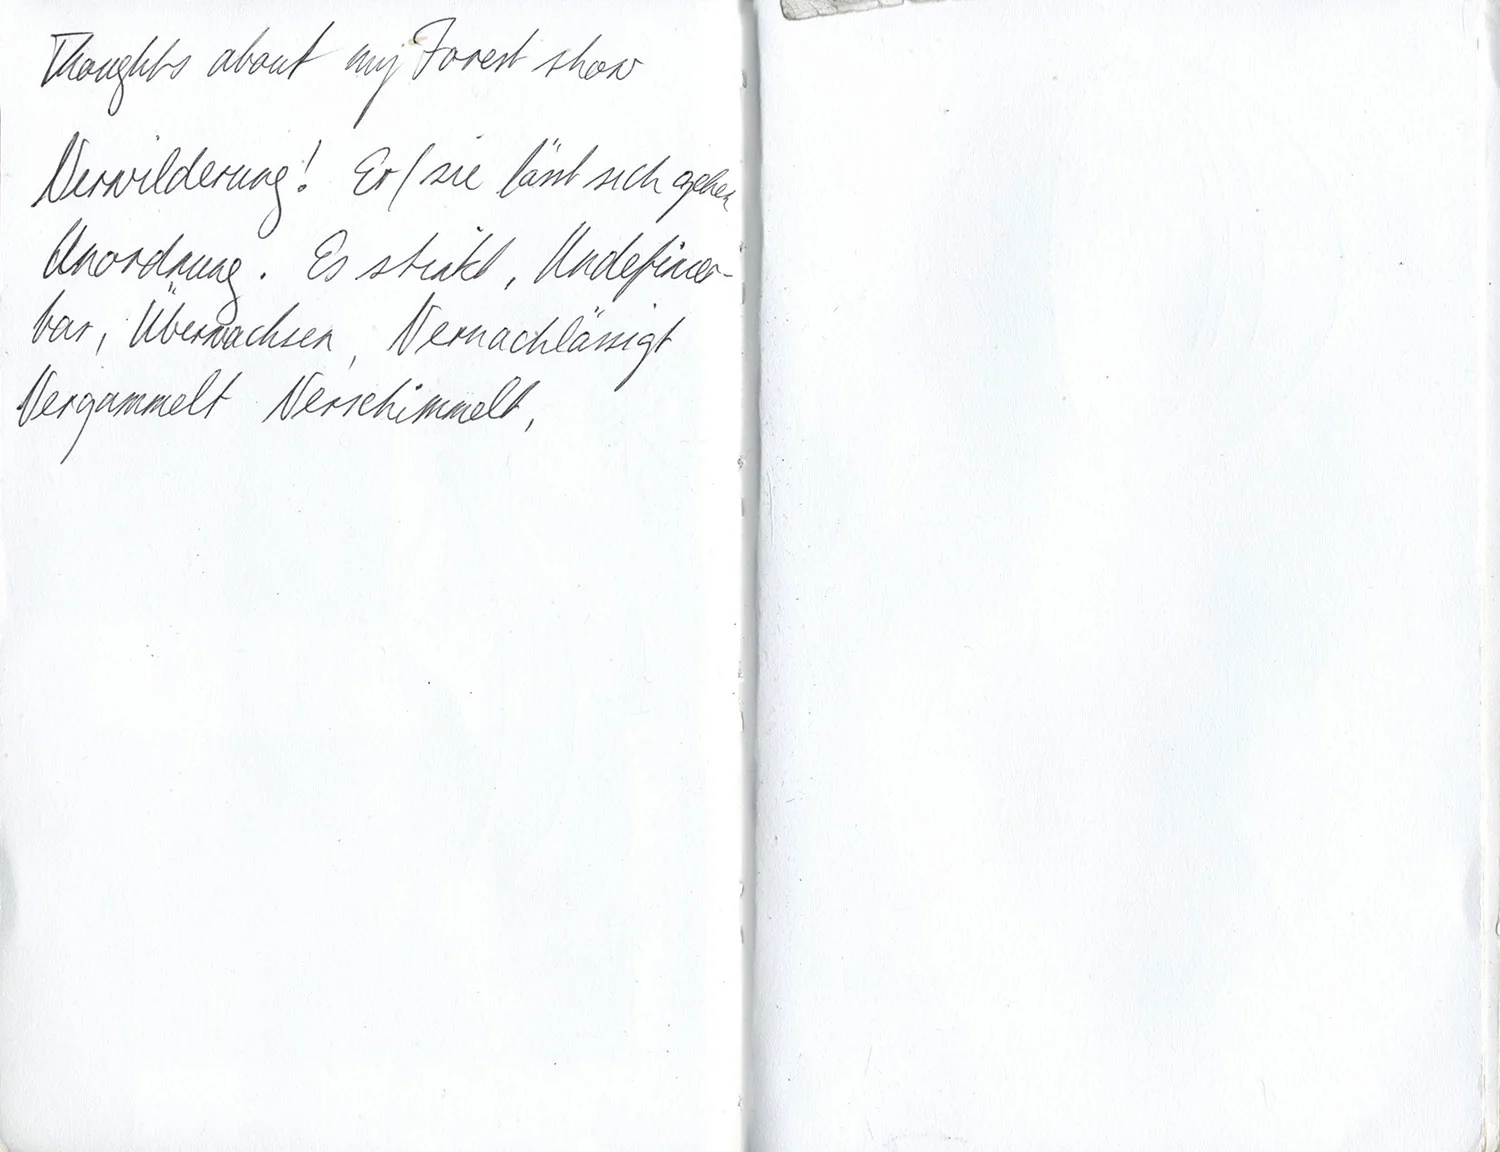 Thoughts about my Forest show
Verwilderung! Er/sie lässt sich gehen
Unordnung. Es stinkt, Undefinier-
bar, Überwachsen, Vernachlässigt
Vergammelt Verschimmelt,